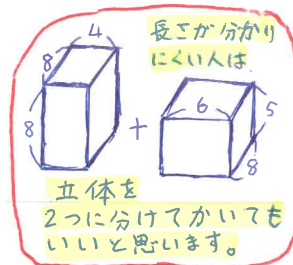 長さが分かり
にくい人は
8
4
8
+
6
5
8
立体を
2つに分けてかいても
いいと思います。